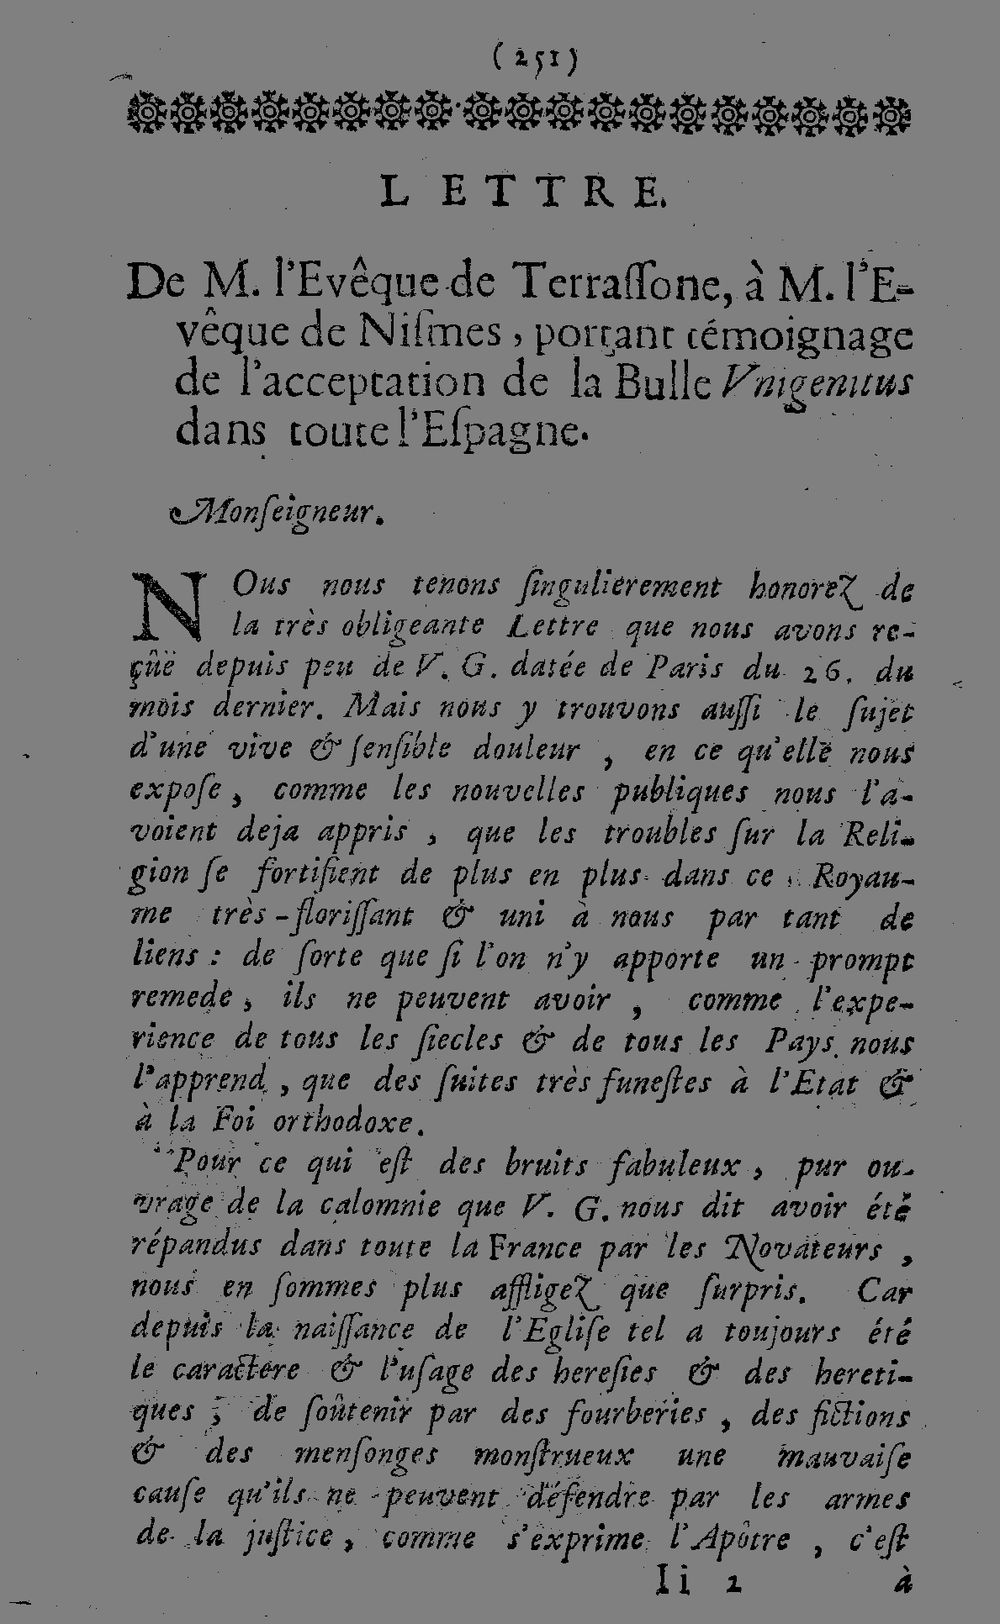 (251)
LETTRE.
De M. l'Evêque de Terraſſone, à M. l'E-
vêque de Niſmes, portant témoignage
de l'acceptation de la Bulle Vnigenitus
dans toute l'Eſpagne.
Monſeigneur.
NOus nous tenons ſingulierement honorez de
la très obligeante Lettre que nous avons re-
çûë depuis peu de V. G. datée de Paris du 26. du
mois dernier. Mais nous y trouvons auſſi le ſujet
d'une vive & ſenſible douleur, en ce qu'elle nous
expoſe, comme les nouvelles publiques nous l'a-
voient deja appris, que les troubles ſur la Reli-
gion ſe fortifient de plus en plus dans ce Royau-
me très-floriſſant & uni à nous par tant de
liens : de ſorte que ſi l'on n'y apporte un prompt
remede, ils ne peuvent avoir, comme l'expe-
rience de tous les ſiecles & de tous les Pays nous
l'apprend, que des ſuites très funeſtes à l'Etat &
à la Foi orthodoxe.
Pour ce qui eſt des bruits fabuleux, pur ou-
vrage de la calomnie que V. G. nous dit avoir été
répandus dans toute la France par les Novateurs,
nous en ſommes plus affligez que ſurpris. Car
depuis la naiſſance de l'Egliſe tel a toujours été
le caractere & l'uſage des hereſies & des hereti-
ques, de ſoûtenir par des fourberies, des fictions
& des menſonges monſtrueux une mauvaiſe
cauſe qu'ils ne peuvent défendre par les armes
de la juſtice, comme s'exprime l'Apôtre, c'eſt
Ii 2 à